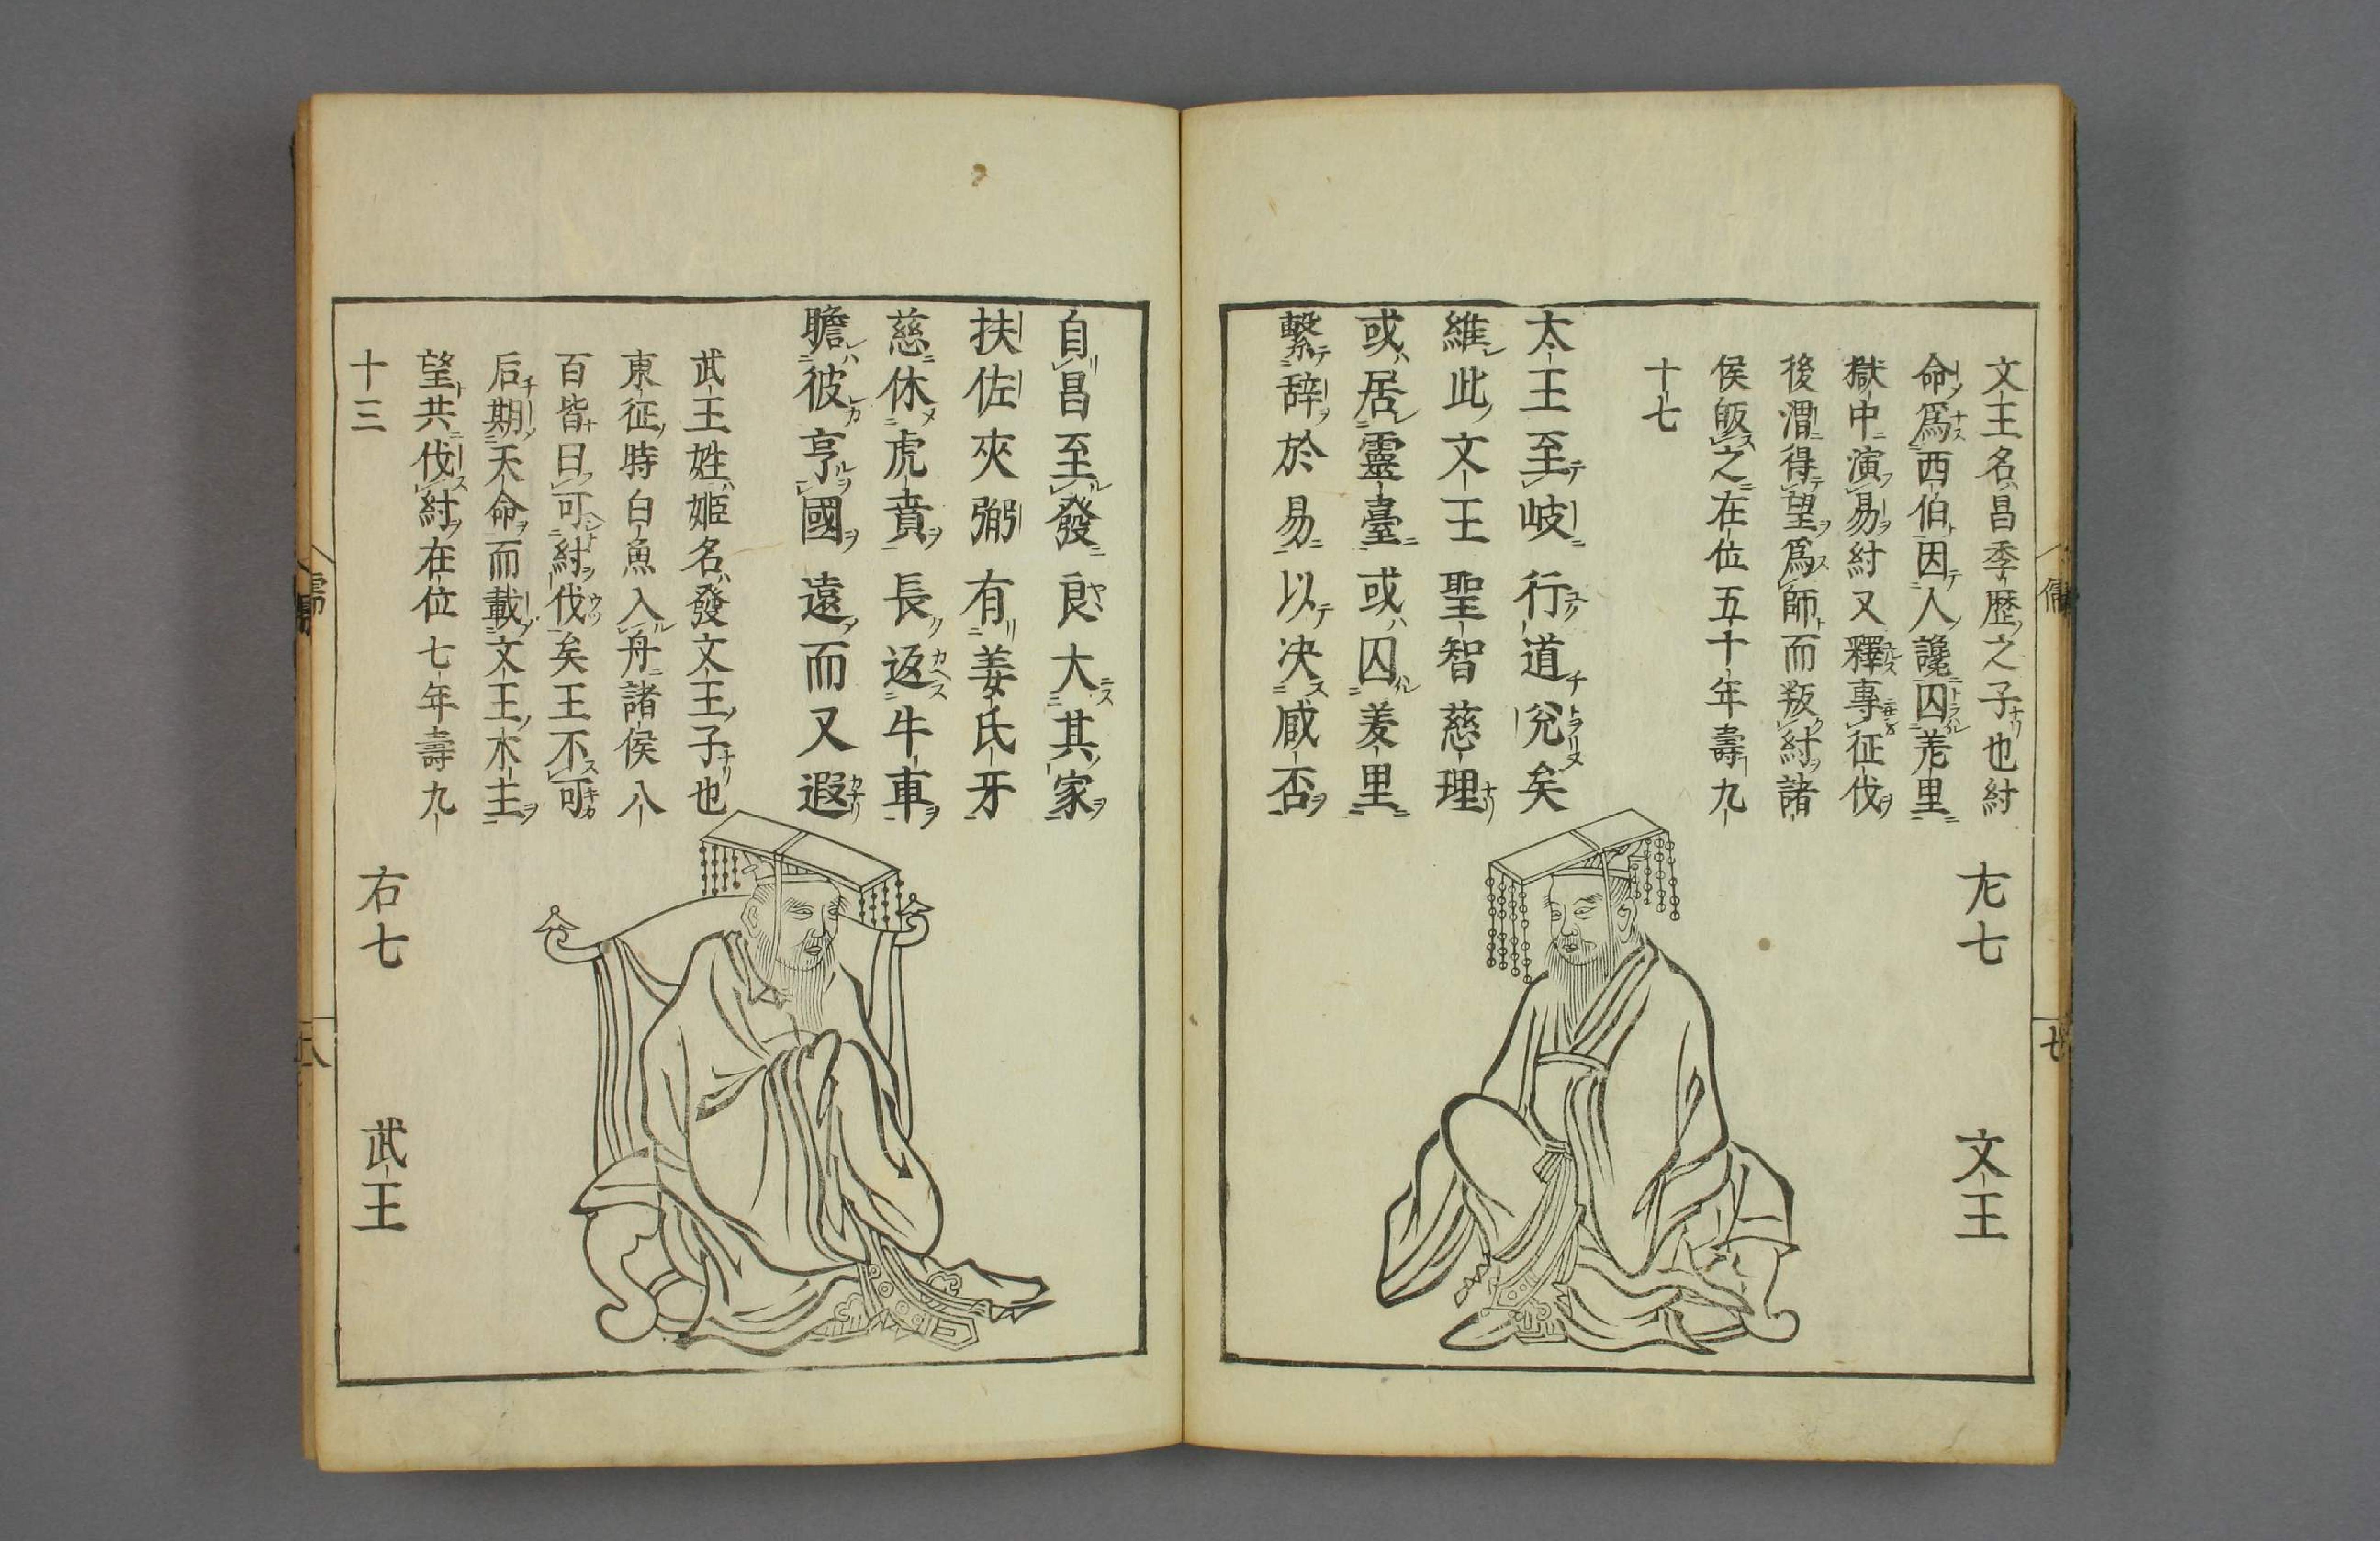 文王名昌季歴之子也紂
命爲西伯因人讒囚羑里
獄中演易紂又釋專征伐
後渭得望爲師而叛紂諸
侯皈之在位五十年壽九
十七
太王至岐行道兌矣
維此文王聖智慈理
或居靈臺或囚羑里
繫辞於易以决臧否
左七 文王
自昌至發良大其家
扶佐夾弼有姜氏牙
慈休虎賁長返牛車
瞻彼享國遠而又遐
武王姓姬名發文王子也
東征時白魚入舟諸侯八
百皆曰可紂伐矣王不可
后期天命而載文王木主
望共伐紂在位七年壽九
十三
右七 武王